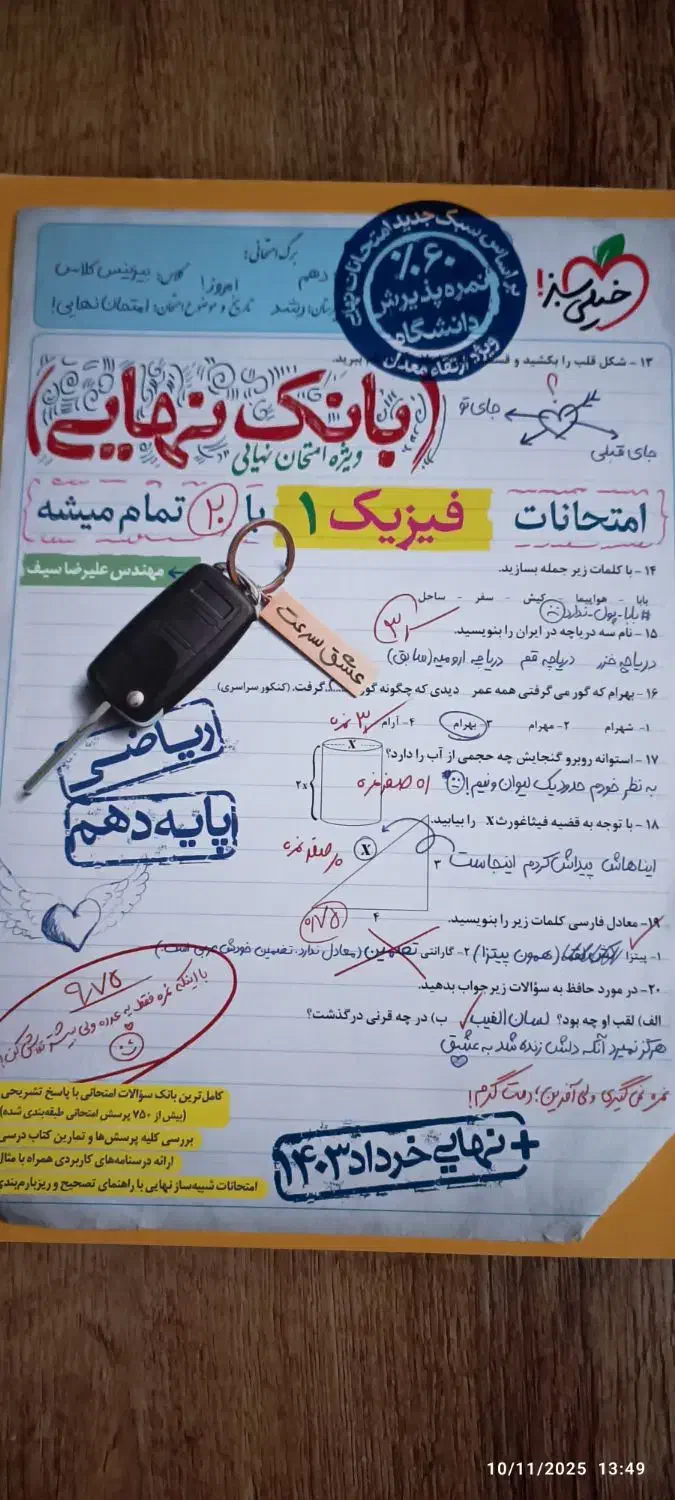 برگ امتحانی:
دهم
کلاس: بیزینس کلاس
امروز!
رشد
تاریخ و موضوع امتحان: امتحان نهایی!
براساس سبک جدید امتحانات نهایی
%۶۰
نمره پذیرش
دانشگاه
ویژه ارتقاء معدل
خیلی سبز!
۱۳ - شکل قلب را بکشید و
ببرید.
؟
جای تو
جای قبلی
(بانک نهایی)
ویژه امتحان نهایی
امتحانات فیزیک ۱ با ۲۰ تمام میشه
مهندس علیرضا سیف
۱۴ - با کلمات زیر جمله بسازید.
بابا - هواپیما - کیش - سفر - ساحل
#بابا_پول_ندارد
عشق سرعت
۱۵ - نام سه دریاچه در ایران را بنویسید.
دریاچه خزر دریاچه قم دریاچه ارومیه (سابق)
۱۶ - بهرام که گور می گرفتی همه عمر دیدی که چگونه گور ..... گرفت. (کنکور سراسری)
۱- شهرام ۲- مهرام ۳- بهرام ۴- آرام
۱۷ - استوانه روبرو گنجایش چه حجمی از آب را دارد؟
به نظر خودم حدود یک لیوان و نیم!
صفر نمره
X
۲x
۱۸ - با توجه به قضیه فیثاغورث X را بیابید.
ایناهاش پیداش کردم اینجاست
صفر نمره
X
۳
۴
ریاضی
پایه دهم
۰/۷۵
۱۹ - معادل فارسی کلمات زیر را بنویسید.
۱- پیتزا (همون پیتزا) ۲- گارانتی تضمین (معادل ندارد، تضمین خودش عربی است.)
۲۰- در مورد حافظ به سؤالات زیر جواب بدهید.
الف) لقب او چه بود؟ لسان الغیب ب) در چه قرنی درگذشت؟
هرگز نمیرد آنکه دلش زنده شد به عشق
۹/۷۵
با اینکه نمره فقط یه عدده ولی بیشتر تلاش کن!
نمره نمی‌گیری ولی آفرین؛ دمت گرم!
کامل‌ترین بانک سؤالات امتحانی با پاسخ تشریحی
(بیش از ۷۵۰ پرسش امتحانی طبقه‌بندی شده)
بررسی کلیه پرسش‌ها و تمارین کتاب درسی
ارائه درسنامه‌های کاربردی همراه با مثال
امتحانات شبیه‌ساز نهایی با راهنمای تصحیح و ریزبارم‌بندی
+ نهایی خرداد ۱۴۰۳
10/11/2025 13:49